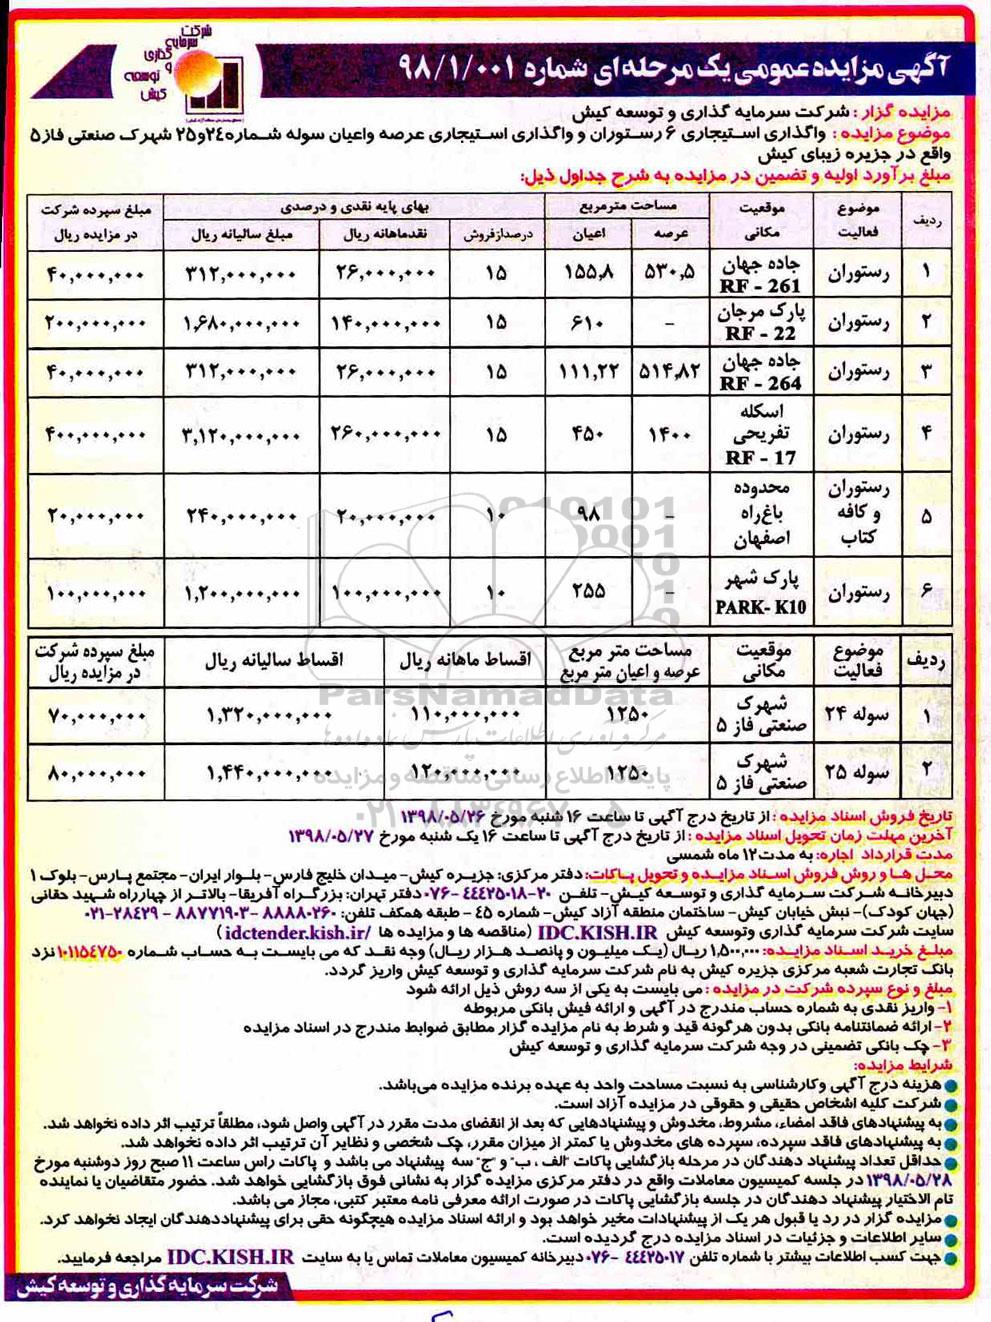 شرکت
سرمایه
گذاری
و توسعه
کیش
آگهی مزایده عمومی یک مرحله ای شماره ۹۸/۱/۰۰۱
مزایده گزار : شرکت سرمایه گذاری و توسعه کیش
موضوع مزایده : واگذاری استیجاری ۶ رستوران و واگذاری استیجاری عرصه واعیان سوله شماره ۲۴و۲۵ شهرک صنعتی فاز۵
واقع در جزیره زیبای کیش
مبلغ برآورد اولیه و تضمین در مزایده به شرح جداول ذیل:
ردیف | موضوع فعالیت | موقعیت مکانی | مساحت مترمربع | بهای پایه نقدی و درصدی | مبلغ سپرده شرکت در مزایده ریال
عرصه | اعیان | درصدازفروش | نقدماهانه ریال | مبلغ سالیانه ریال
۱ | رستوران | جاده جهان RF - 261 | ۵۳۰,۵ | ۱۵۵,۸ | ۱۵ | ۲۶,۰۰۰,۰۰۰ | ۳۱۲,۰۰۰,۰۰۰ | ۴۰,۰۰۰,۰۰۰
۲ | رستوران | پارک مرجان RF - 22 | – | ۶۱۰ | ۱۵ | ۱۴۰,۰۰۰,۰۰۰ | ۱,۶۸۰,۰۰۰,۰۰۰ | ۲۰۰,۰۰۰,۰۰۰
۳ | رستوران | جاده جهان RF - 264 | ۵۱۴,۸۲ | ۱۱۱,۲۲ | ۱۵ | ۲۶,۰۰۰,۰۰۰ | ۳۱۲,۰۰۰,۰۰۰ | ۴۰,۰۰۰,۰۰۰
۴ | رستوران | اسکله تفریحی RF - 17 | ۱۴۰۰ | ۴۵۰ | ۱۵ | ۲۶۰,۰۰۰,۰۰۰ | ۳,۱۲۰,۰۰۰,۰۰۰ | ۴۰۰,۰۰۰,۰۰۰
۵ | رستوران و کافه کتاب | محدوده باغ‌راه اصفهان | – | ۹۸ | ۱۰ | ۲۰,۰۰۰,۰۰۰ | ۲۴۰,۰۰۰,۰۰۰ | ۲۰,۰۰۰,۰۰۰
۶ | رستوران | پارک شهر PARK- K10 | – | ۲۵۵ | ۱۰ | ۱۰۰,۰۰۰,۰۰۰ | ۱,۲۰۰,۰۰۰,۰۰۰ | ۱۰۰,۰۰۰,۰۰۰
ردیف | موضوع فعالیت | موقعیت مکانی | مساحت متر مربع عرصه و اعیان متر مربع | اقساط ماهانه ریال | اقساط سالیانه ریال | مبلغ سپرده شرکت در مزایده ریال
۱ | سوله ۲۴ | شهرک صنعتی فاز ۵ | ۱۲۵۰ | ۱۱۰,۰۰۰,۰۰۰ | ۱,۳۲۰,۰۰۰,۰۰۰ | ۷۰,۰۰۰,۰۰۰
۲ | سوله ۲۵ | شهرک صنعتی فاز ۵ | ۱۲۵۰ | ۱۲۰,۰۰۰,۰۰۰ | ۱,۴۴۰,۰۰۰,۰۰۰ | ۸۰,۰۰۰,۰۰۰
ParsNamadData
پایگاه اطلاع رسانی مناقصه و مزایده
تاریخ فروش اسناد مزایده : از تاریخ درج آگهی تا ساعت ۱۶ شنبه مورخ ۱۳۹۸/۰۵/۲۶
آخرین مهلت زمان تحویل اسناد مزایده : از تاریخ درج آگهی تا ساعت ۱۶ یک شنبه مورخ ۱۳۹۸/۰۵/۲۷
مدت قرارداد اجاره: به مدت ۱۲ ماه شمسی
محل ها و روش فروش اسناد مزایده و تحویل پاکات: دفتر مرکزی: جزیره کیش- میدان خلیج فارس- بلوار ایران- مجتمع پارس- بلوک ۱
دبیرخانه شرکت سرمایه گذاری و توسعه کیش- تلفن ۲۰-۴۴۴۲۵۰۱۸-۰۷۶ دفتر تهران: بزرگراه آفریقا- بالاتر از چهارراه شهید حقانی
(جهان کودک)- نبش خیابان کیش- ساختمان منطقه آزاد کیش- شماره ۴۵ - طبقه همکف تلفن: ۸۸۸۸۰۲۶۰ - ۸۸۷۷۱۹۰۳ - ۲۸۴۲۹-۰۲۱
سایت شرکت سرمایه گذاری وتوسعه کیش IDC.KISH.IR (مناقصه ها و مزایده ها /idctender.kish.ir )
مبلغ خرید اسناد مزایده: ۱,۵۰۰,۰۰۰ ریال (یک میلیون و پانصد هزار ریال) وجه نقد که می بایست به حساب شماره ۱۰۱۱۵۴۷۵۰ نزد
بانک تجارت شعبه مرکزی جزیره کیش به نام شرکت سرمایه گذاری و توسعه کیش واریز گردد.
مبلغ و نوع سپرده شرکت در مزایده : می بایست به یکی از سه روش ذیل ارائه شود
۱- واریز نقدی به شماره حساب مندرج در آگهی و ارائه فیش بانکی مربوطه
۲- ارائه ضمانتنامه بانکی بدون هرگونه قید و شرط به نام مزایده گزار مطابق ضوابط مندرج در اسناد مزایده
۳- چک بانکی تضمینی در وجه شرکت سرمایه گذاری و توسعه کیش
شرایط مزایده:
هزینه درج آگهی وکارشناسی به نسبت مساحت واحد به عهده برنده مزایده می‌باشد.
شرکت کلیه اشخاص حقیقی و حقوقی در مزایده آزاد است.
به پیشنهادهای فاقد امضاء، مشروط، مخدوش و پیشنهادهایی که بعد از انقضای مدت مقرر در آگهی واصل شود، مطلقاً ترتیب اثر داده نخواهد شد.
به پیشنهادهای فاقد سپرده، سپرده های مخدوش یا کمتر از میزان مقرر، چک شخصی و نظایر آن ترتیب اثر داده نخواهد شد.
حداقل تعداد پیشنهاد دهندگان در مرحله بازگشایی پاکات "الف ، ب" و "ج" سه پیشنهاد می باشد و پاکات راس ساعت ۱۱ صبح روز دوشنبه مورخ
۱۳۹۸/۰۵/۲۸ در جلسه کمیسیون معاملات واقع در دفتر مرکزی مزایده گزار به نشانی فوق بازگشایی خواهد شد. حضور متقاضیان یا نماینده
تام الاختیار پیشنهاد دهندگان در جلسه بازگشایی پاکات در صورت ارائه معرفی نامه معتبر کتبی، مجاز می باشد.
مزایده گزار در رد یا قبول هر یک از پیشنهادات مخیر خواهد بود و ارائه اسناد مزایده هیچگونه حقی برای پیشنهاددهندگان ایجاد نخواهد کرد.
سایر اطلاعات و جزئیات در اسناد مزایده درج گردیده است.
جهت کسب اطلاعات بیشتر با شماره تلفن ۴۴۴۲۵۰۱۷ -۰۷۶ دبیرخانه کمیسیون معاملات تماس یا به سایت IDC.KISH.IR مراجعه فرمایید.
شرکت سرمایه گذاری و توسعه کیش